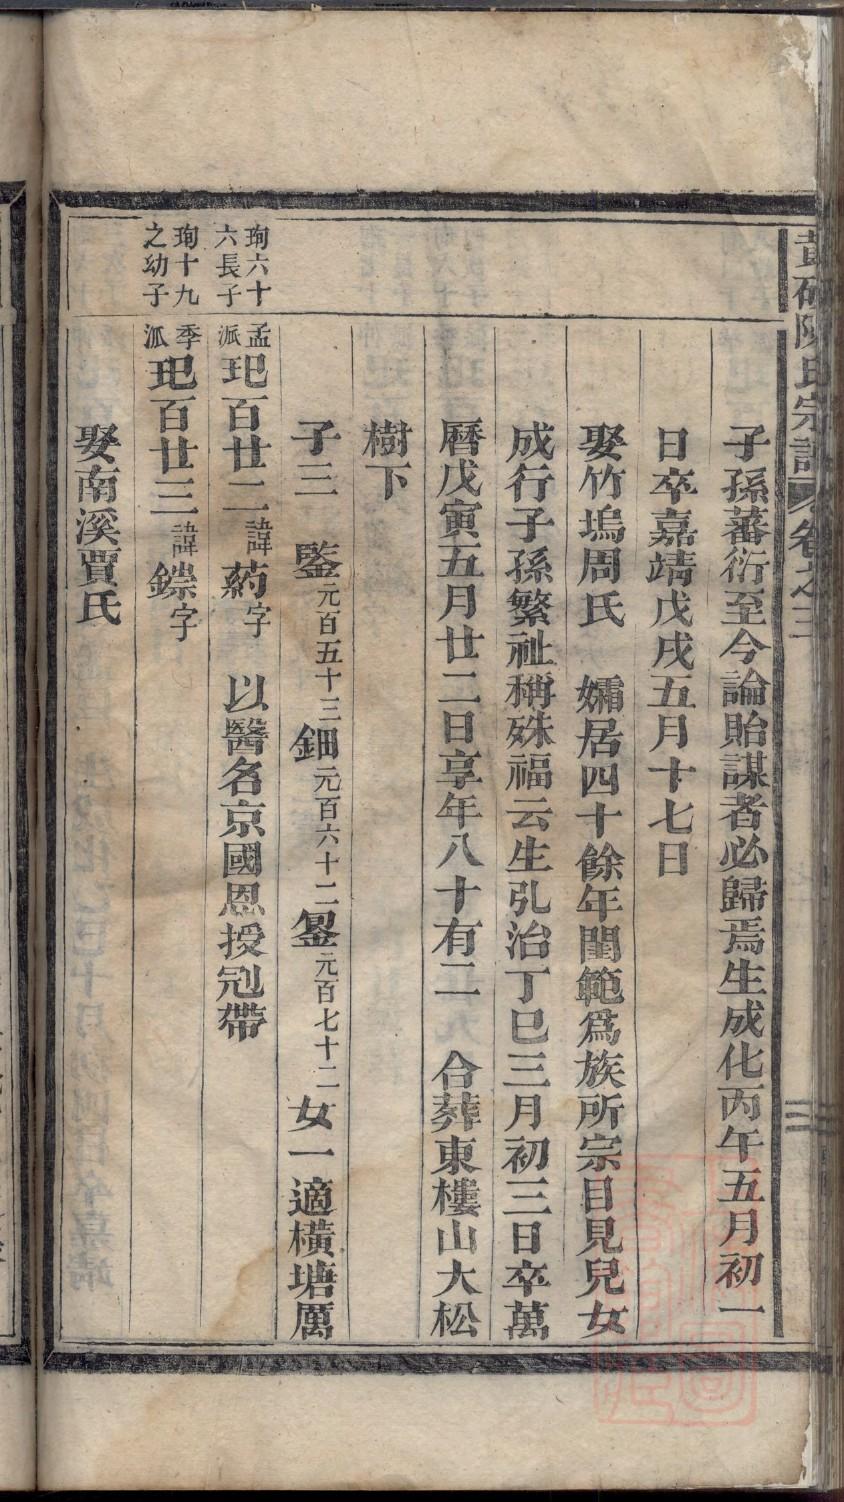 陳氏宗譜 卷之三
子孫蕃衍至今論貽謀者必歸焉生成化丙午五月初一
日卒嘉靖戊戌五月十七日
娶竹塢周氏 孀居四十餘年閨範爲族所宗目見兒女
成行子孫繁祉稱殊福云生弘治丁巳三月初三日卒萬
曆戊寅五月廿二日享年八十有二 合葬東樓山大松
樹下
子三 鋻元百五十三鈿元百六十二 元百七十二女一適橫塘厲
珣六十六長子
孟派玘百廿二諱葯字 以醫名京國恩授冠帶
珣十九之幼子
季派玘百廿三諱鏱字
娶南溪賈氏